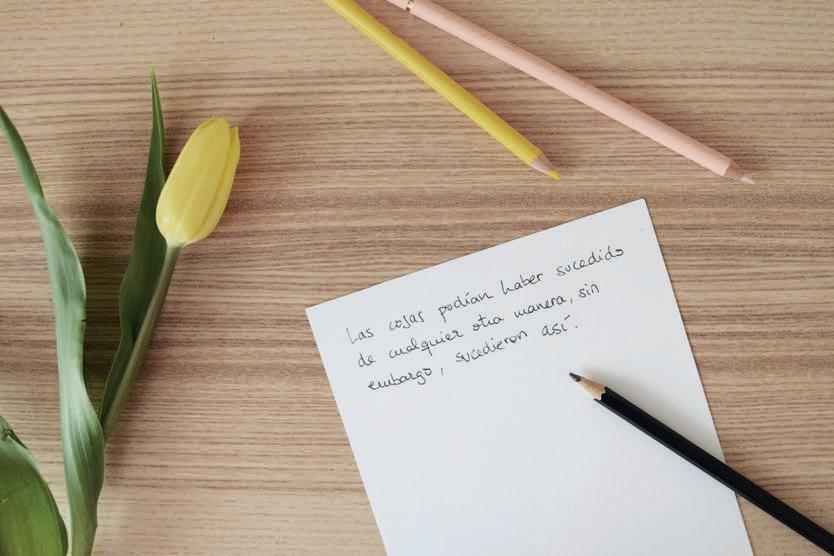 Las cosas podían haber sucedido
de cualquier otra manera, sin
embargo, sucedieron así.